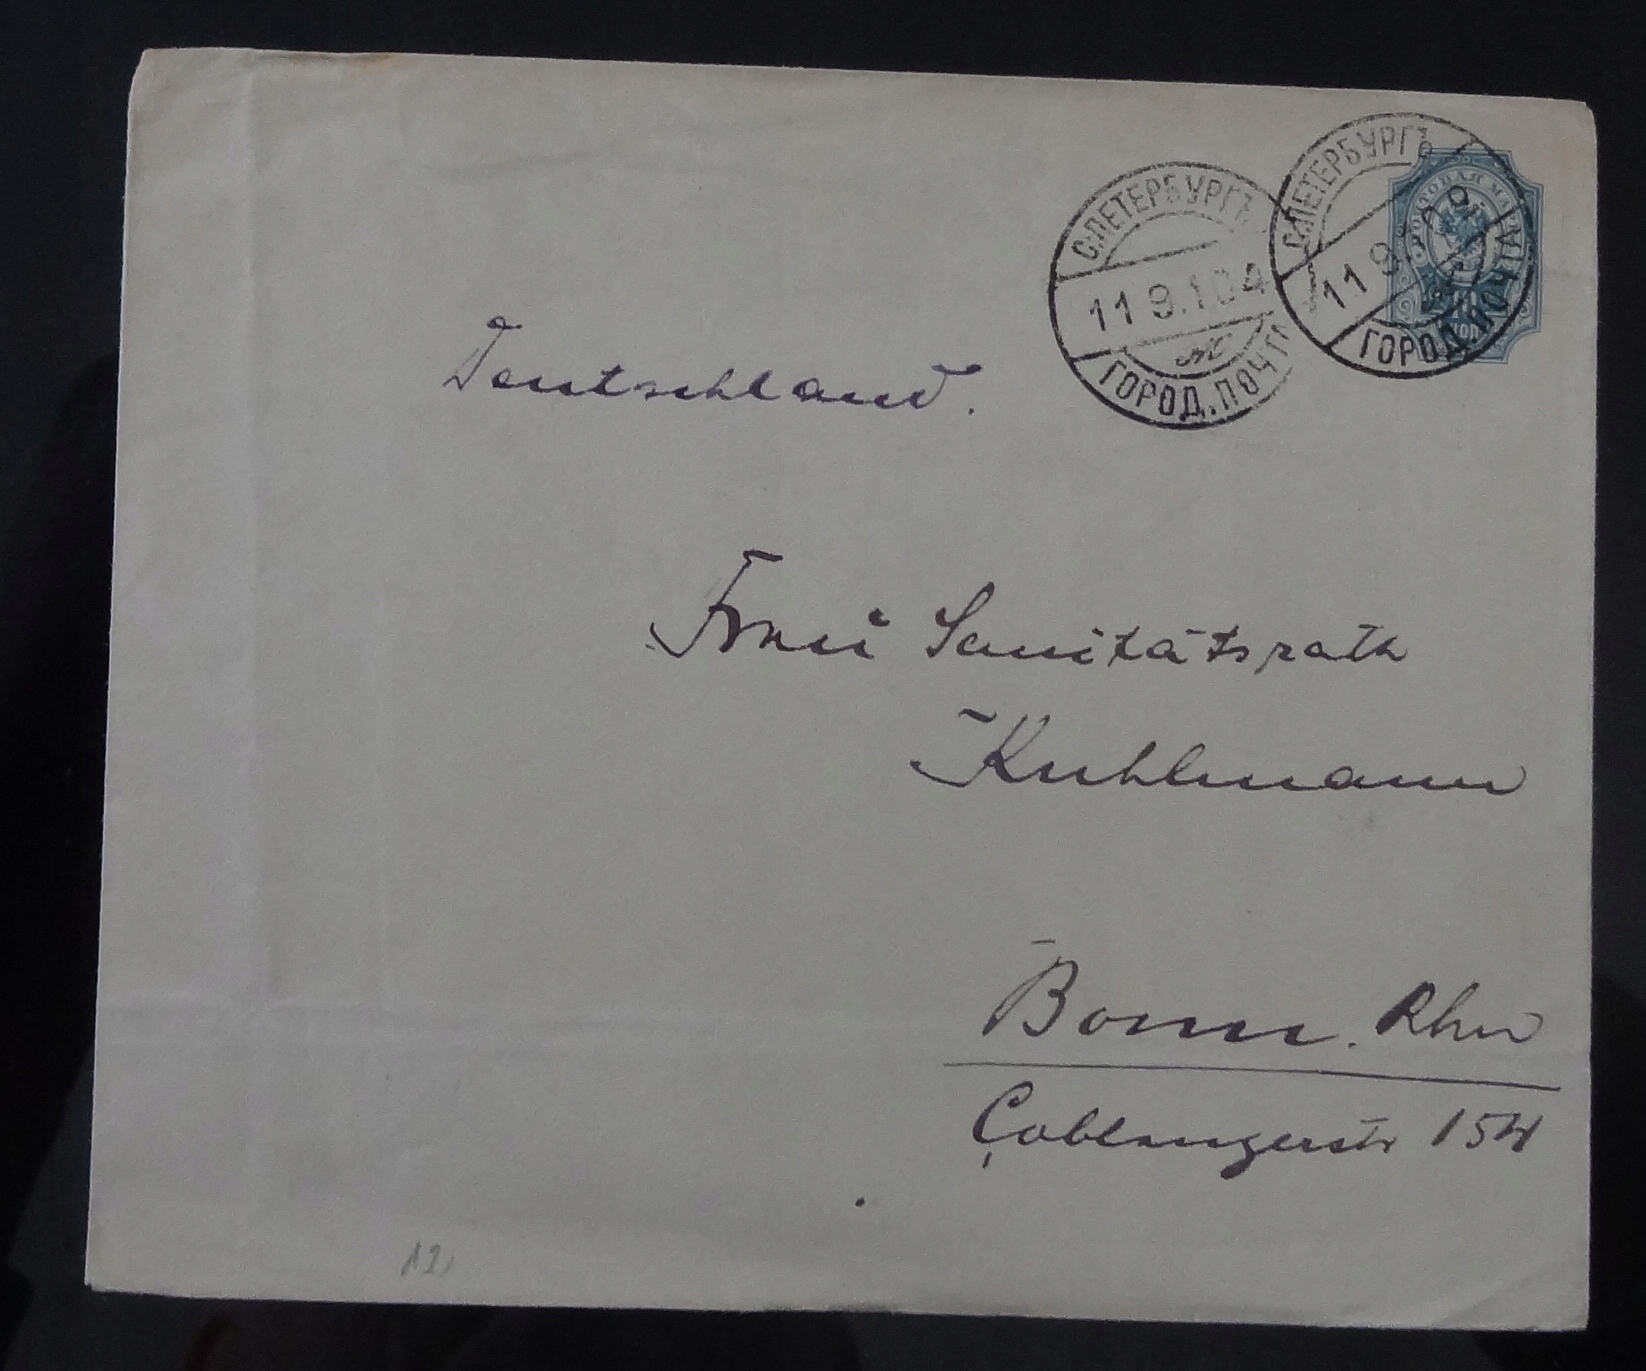 С.ПЕТЕРБУРГЪ
11 9.1904
ГОРОД.ПОЧТА
С.ПЕТЕРБУРГЪ
11 9
ГОРОД.ПОЧТА
ПОЧТОВАЯ МАРКА
Deutschland.
Frau Sanitätsrath
Kuhlmann
Bonn. Rhein
Coblenzerstr
12